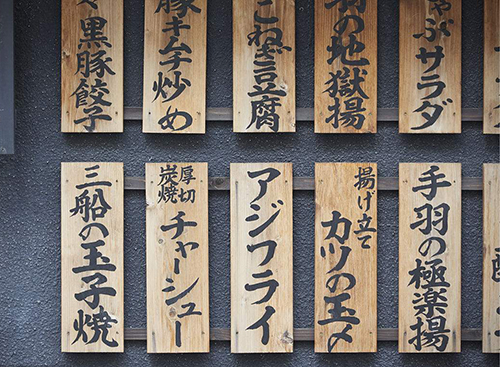 ゃぶサラダ
の地獄揚
こねぎ豆腐
豚キムチ炒め
黒豚餃子
手羽の極楽揚
揚げ立て
カツの玉〆
アジフライ
厚切
炭焼
チャーシュー
三船の玉子焼